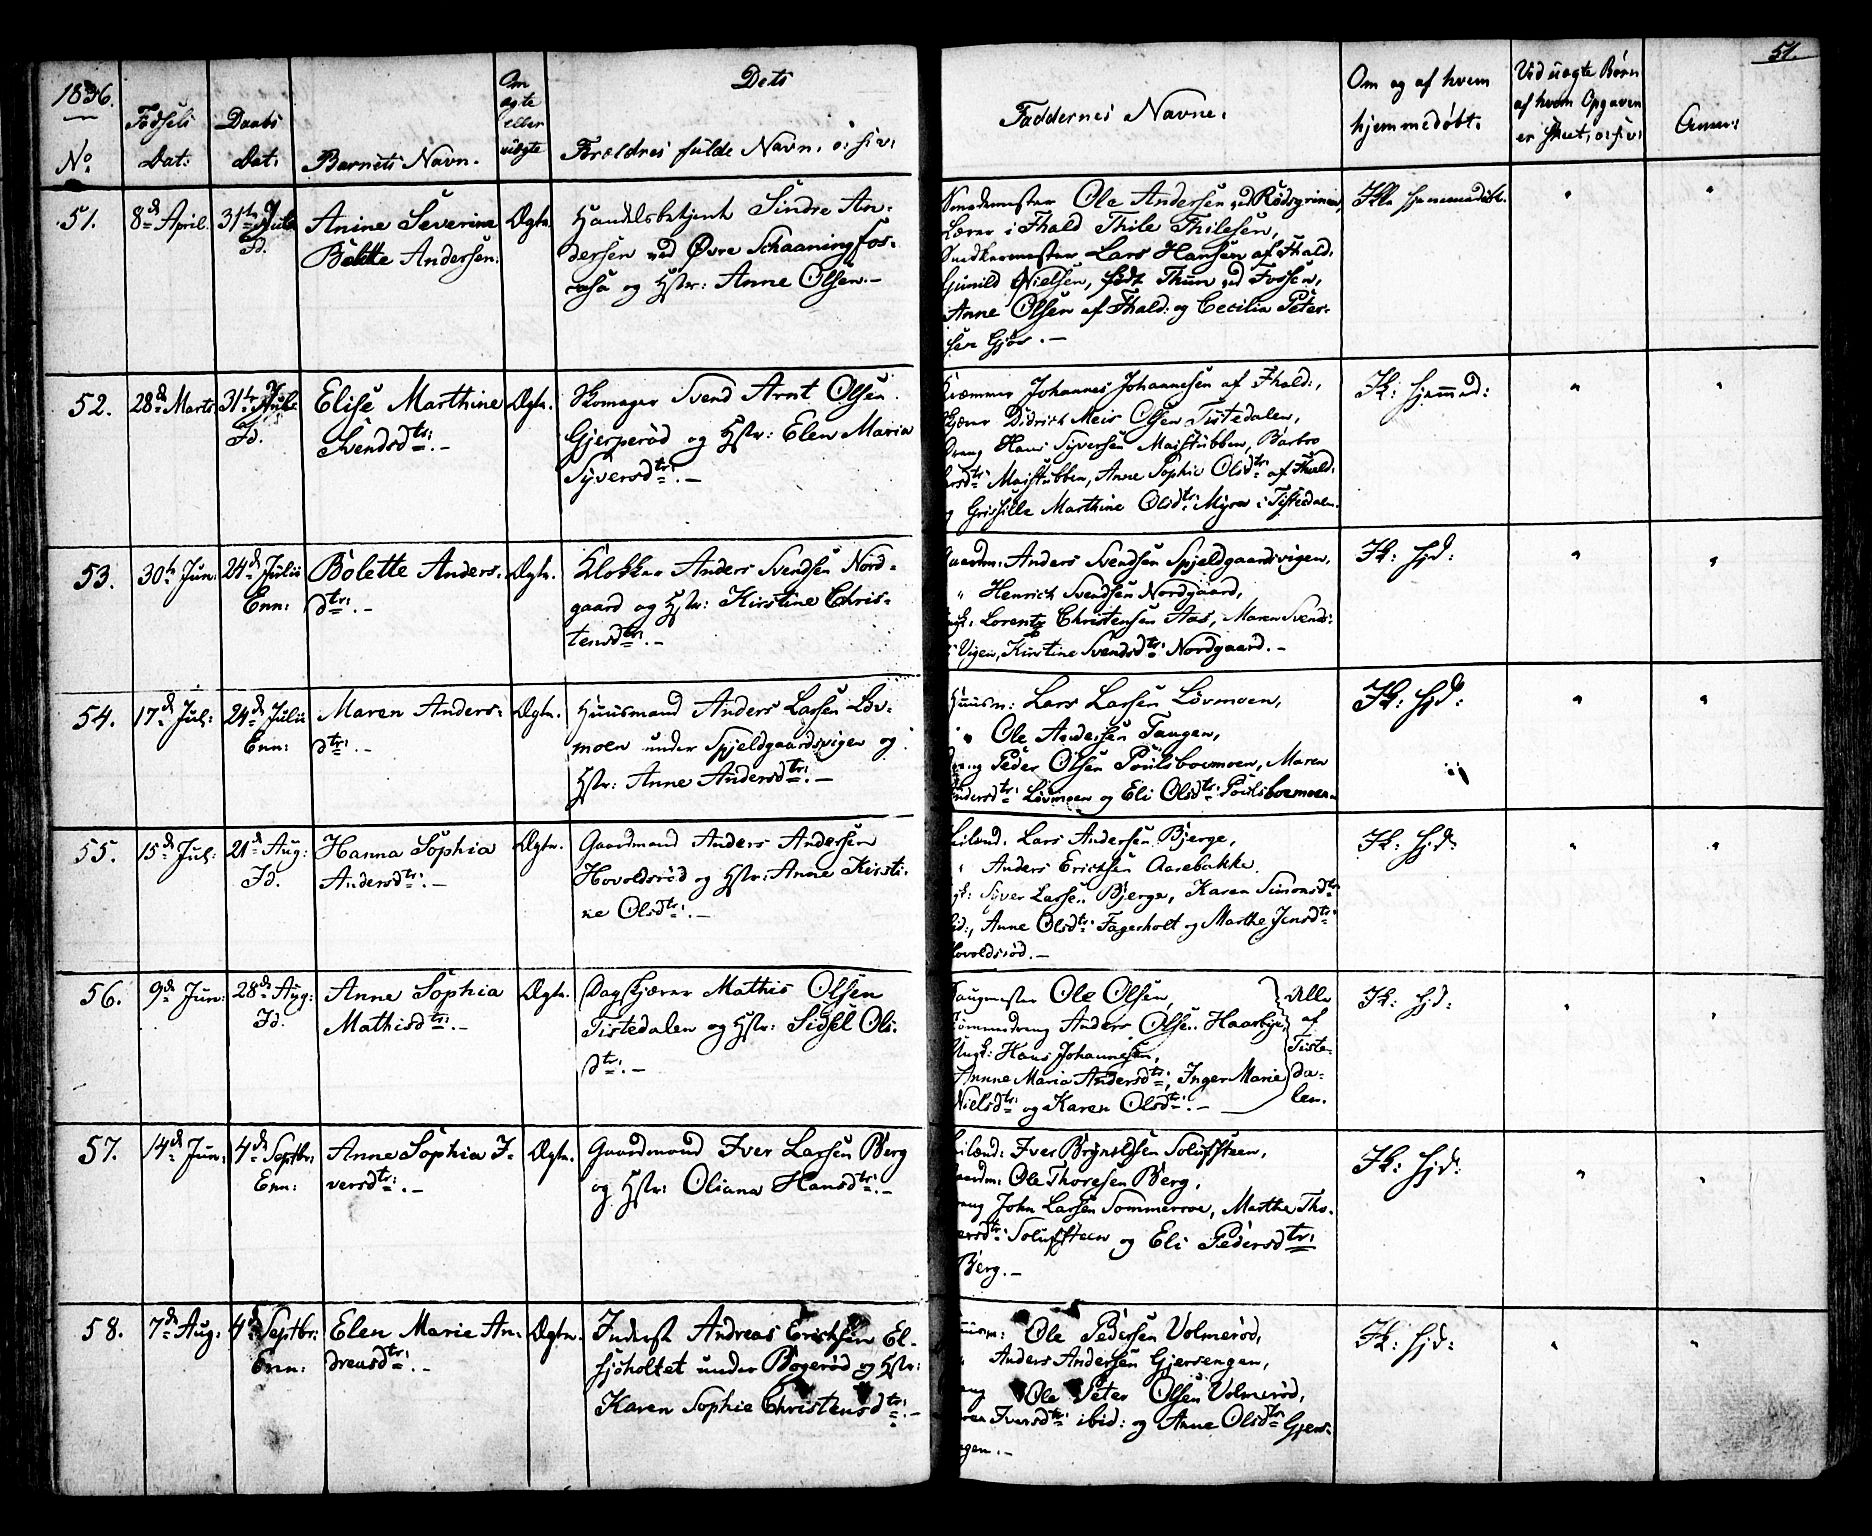 1836.
No
Fødsels
Dat:
Daabs
Dat:
Barnets Navn.
Om
ægte
eller
uægte
Dets
Forældres fulde Navn, o: s: v:
Faddernes Navne.
Om og af hvem
hjemmedøbt.
Vid uægte Børn
af hvem Opgaven
er skeet, o: s: v:
Anm:
51.
51.
8de April.
31te Julii
Id.
Anine Severine
Bolette Andersen.
Ægte.
Handelsbetjent Sindre An-
dersen ved Øvre Schaaningfos-
og Hstr: Anne Olsen.-
Smedemester Ole Andersen ved Rødsgrinen,
Lærer i Fhald Thile Thilesen,
Snedkermester Lars Hansen af Fhald:
Gunild Nielsen, født Thun ved Fossen,
Anne Olsen af Fhald: og Cecilia Peter-
sen Gjøs.-
Ikke hjemmedøbt.
"
"
52.
28de Marts
31te Juli
Id.
Elise Marthine
Svendsdtr:.-
Ægte.
Skomager Svend Arnt Olsen
Gjerperød og Hstr: Elen Maria
Syversdtr:.-
Kræmmer Johannes Johannesen af Fhald:,
Skjærer Didrich Meir Olsen Tistedalen,
Dreng Hans Syversen Maistubben, Barbro
Maistubben, Anne Sophie Olsdtr: af Fhald:
og Grissille Marthine Olsdtr: Myren i Tistedalen.
Ik: hjemmed:
"
"
53.
30te Jun:
24de Julii
Enn:
Bolette Anders-
dtr:.-
Ægte.
Klokker Anders Svendsen Nord-
gaard og Hstr: Kirstine Chris-
tensdtr:.-
Gaardm: Anders Svendsen Spjeldgaardsvigen,
" Henrich Svendsen Nordgaard,
Ungk: Lorentz Christensen Aas, Maren Svends-
Vigen, Kirstine Svendsdtr: Nordgaard.-
Ik: hjd:
"
"
54.
17de Jul:
24de Julii
Enn:
Maren Anders-
dtr:.-
Ægte.
Huusmand Anders Larsen Løv-
moen under Spjeldgaardsvigen og
Hstr: Anne Andersdtr:.-
Huusm: Lars Larsen Løvmoen,
" Ole Andersen Tangen,
Dreng Peder Olsen Poulsboemoen, Maren
Andersdtr: Løvmoen og Eli Olsdtr: Poulsboemoen.
Ik: hjd:
"
"
55.
15de Jul:
21de Aug:
Id.
Hanna Sophia
Andersdtr:.-
Ægte.
Gaardmand Anders Andersen
Hovoldsrød og Hstr: Anne Kirsti-
ne Olsdtr:.-
Leilænd: Lars Andersen Bjerge,
" Anders Erichsen Aarebakke.
Ungk: Syver Larsen Bjerge, Karen Simonsdtr:
ibid:, Anne Olsdtr: Fagerholt og Marthe Jensdtr:
Hovoldsrød.-
Ik: hjd:
"
"
56.
9de Jun:
28de Aug:
Id.
Anne Sophia
Mathisdtr:.-
Ægte.
Dagskjærer Mathis Olsen
Tistedalen og Hstr: Sidsel Ols-
dtr:.-
Saugmester Ole Olsen,
Tømmedreng Anders Olsen Haarbye,
Ungk: Hans Johannesen,
Annne Maria Andersdtr:, Inger Marie
Nielsdtr: og Karen Olsdtr:.-
Alle
af
Tiste-
da-
len.
Ik: hjd:
"
"
57.
14de Jun:
4de Septbr:
Enn:
Anne Sophia I-
versdtr:.-
Ægte.
Gaardmand Iver Larsen Berg
og Hstr: Oliana Hansdtr:.-
Leilænd: Iver Brynildsen Solufsteen,
Gaardm: Ole Thoresen Berg,
Dreng John Larsen Sommerroe, Marthe Tho-
resdtr: Solufsteen og Eli Pedersdtr:
Berg.-
Ik: hjd:
"
"
58.
7de Aug:
4de Septbr:
Enn:
Elen Marie An-
dreasdtr:.-
Ægte.
Inderst Andreas Erichsen El-
sjøholtet under Bøgerød og Hstr:
Karen Sophie Christensdtr:.-
Huusm: Ole Pedersen Volmerød,
" Anders Andersen Gjersengen,
Dreng Ole Peter Olsen Volmerød,
Iversdtr: ibid: og Anne Olsdtr: Gjers-
engen.-
Ik: hjd:
"
"